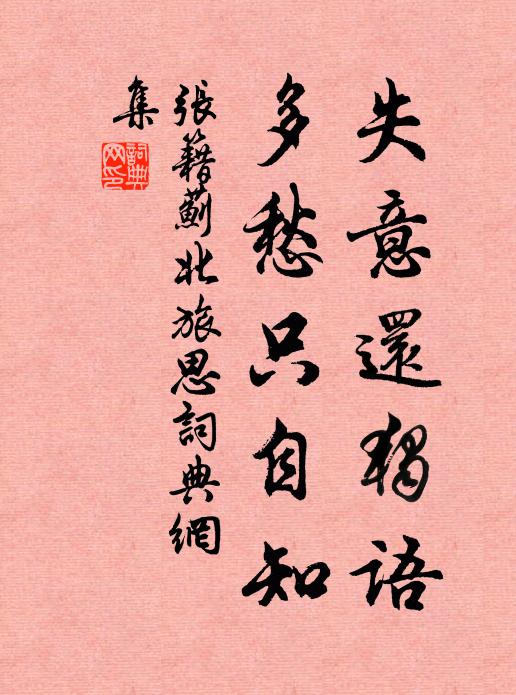 失意還獨語
多愁只自知
張籍薊北旅思詞典網
集
詞典網印